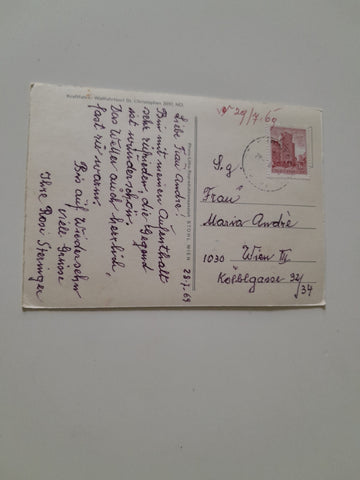 Kraftfahrer-Wallfahrtsort St. Christophen, NÖ.
28.7.69
Liebe Frau André!
Bin mit meinen Aufenthalt
sehr zufrieden, die Gegend
ist wunderschön,
Das Wetter auch herrlich,
fast zu warm.
Bis auf Wiedersehn
viele Grüsse
Ihre Rosi
STOHL WIEN
29/7.69
S.g.
Frau
Maria Andrè
1030 Wien III.
Kölblgasse 32/
34